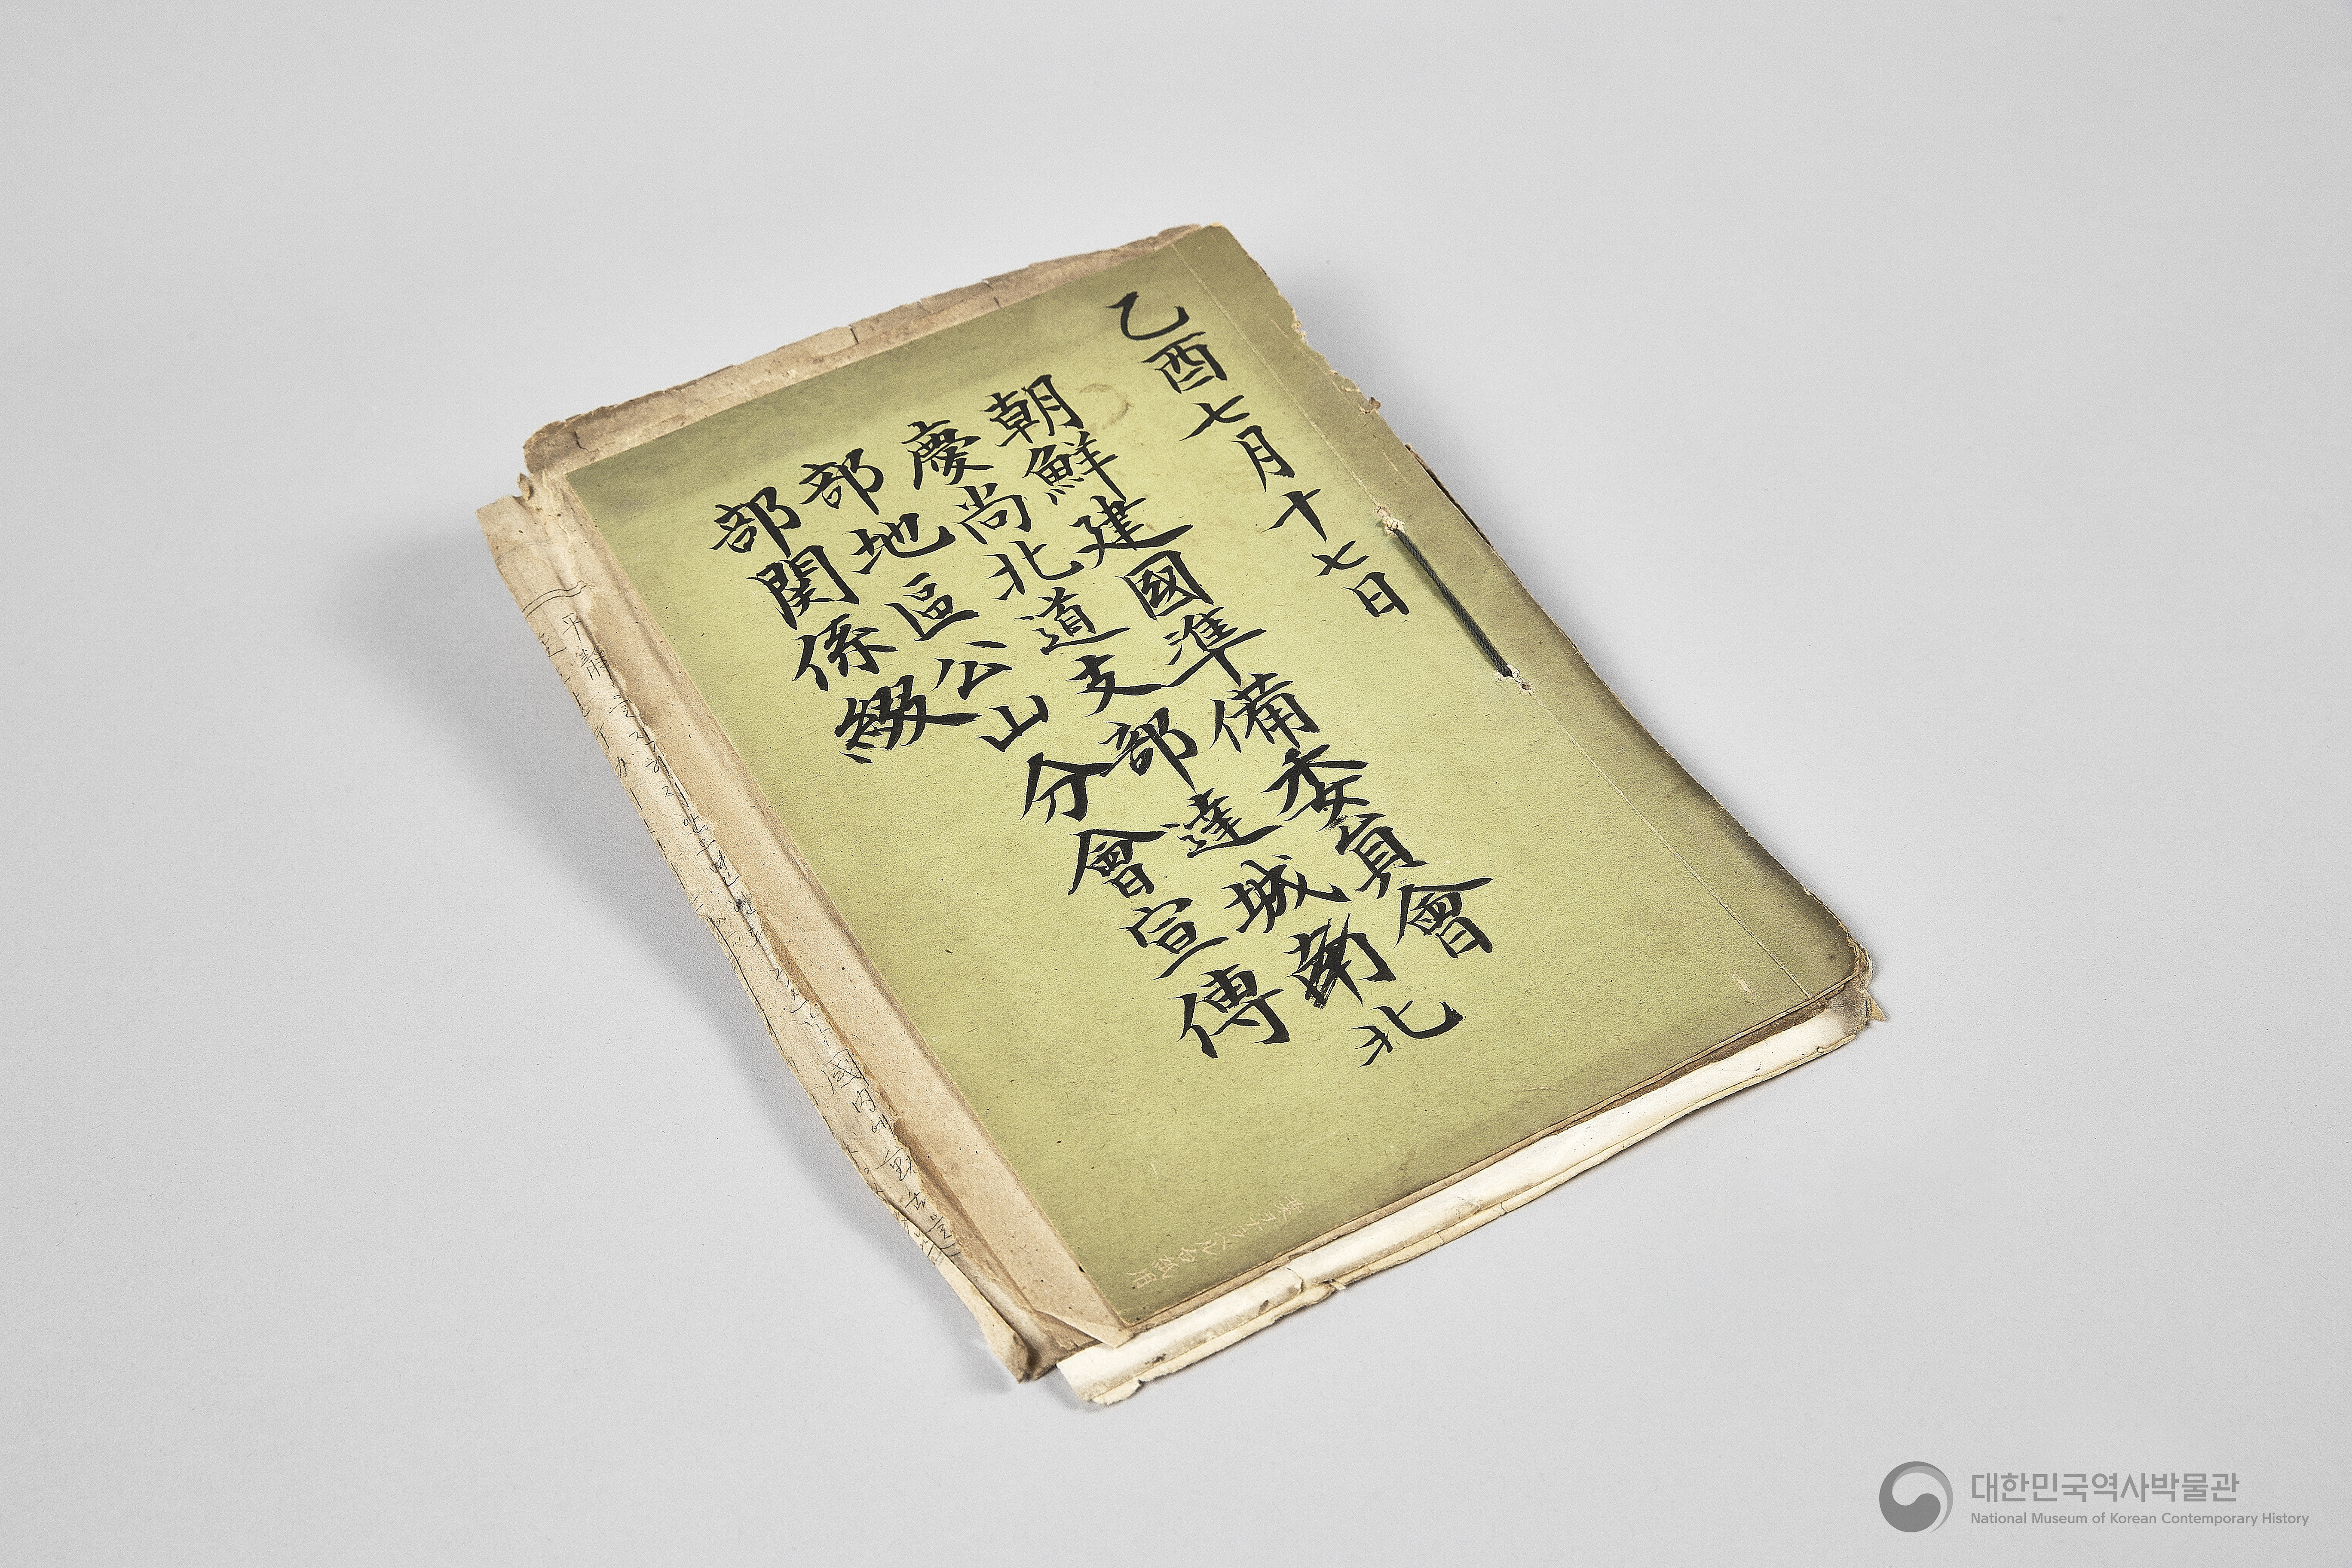 乙酉七月十七日
朝鮮建國準備委員會
慶尚北道支部達城南北
部地區公山分會宣傳
部関係綴
國內에
대한민국역사박물관
National Museum of Korean Contemporary History